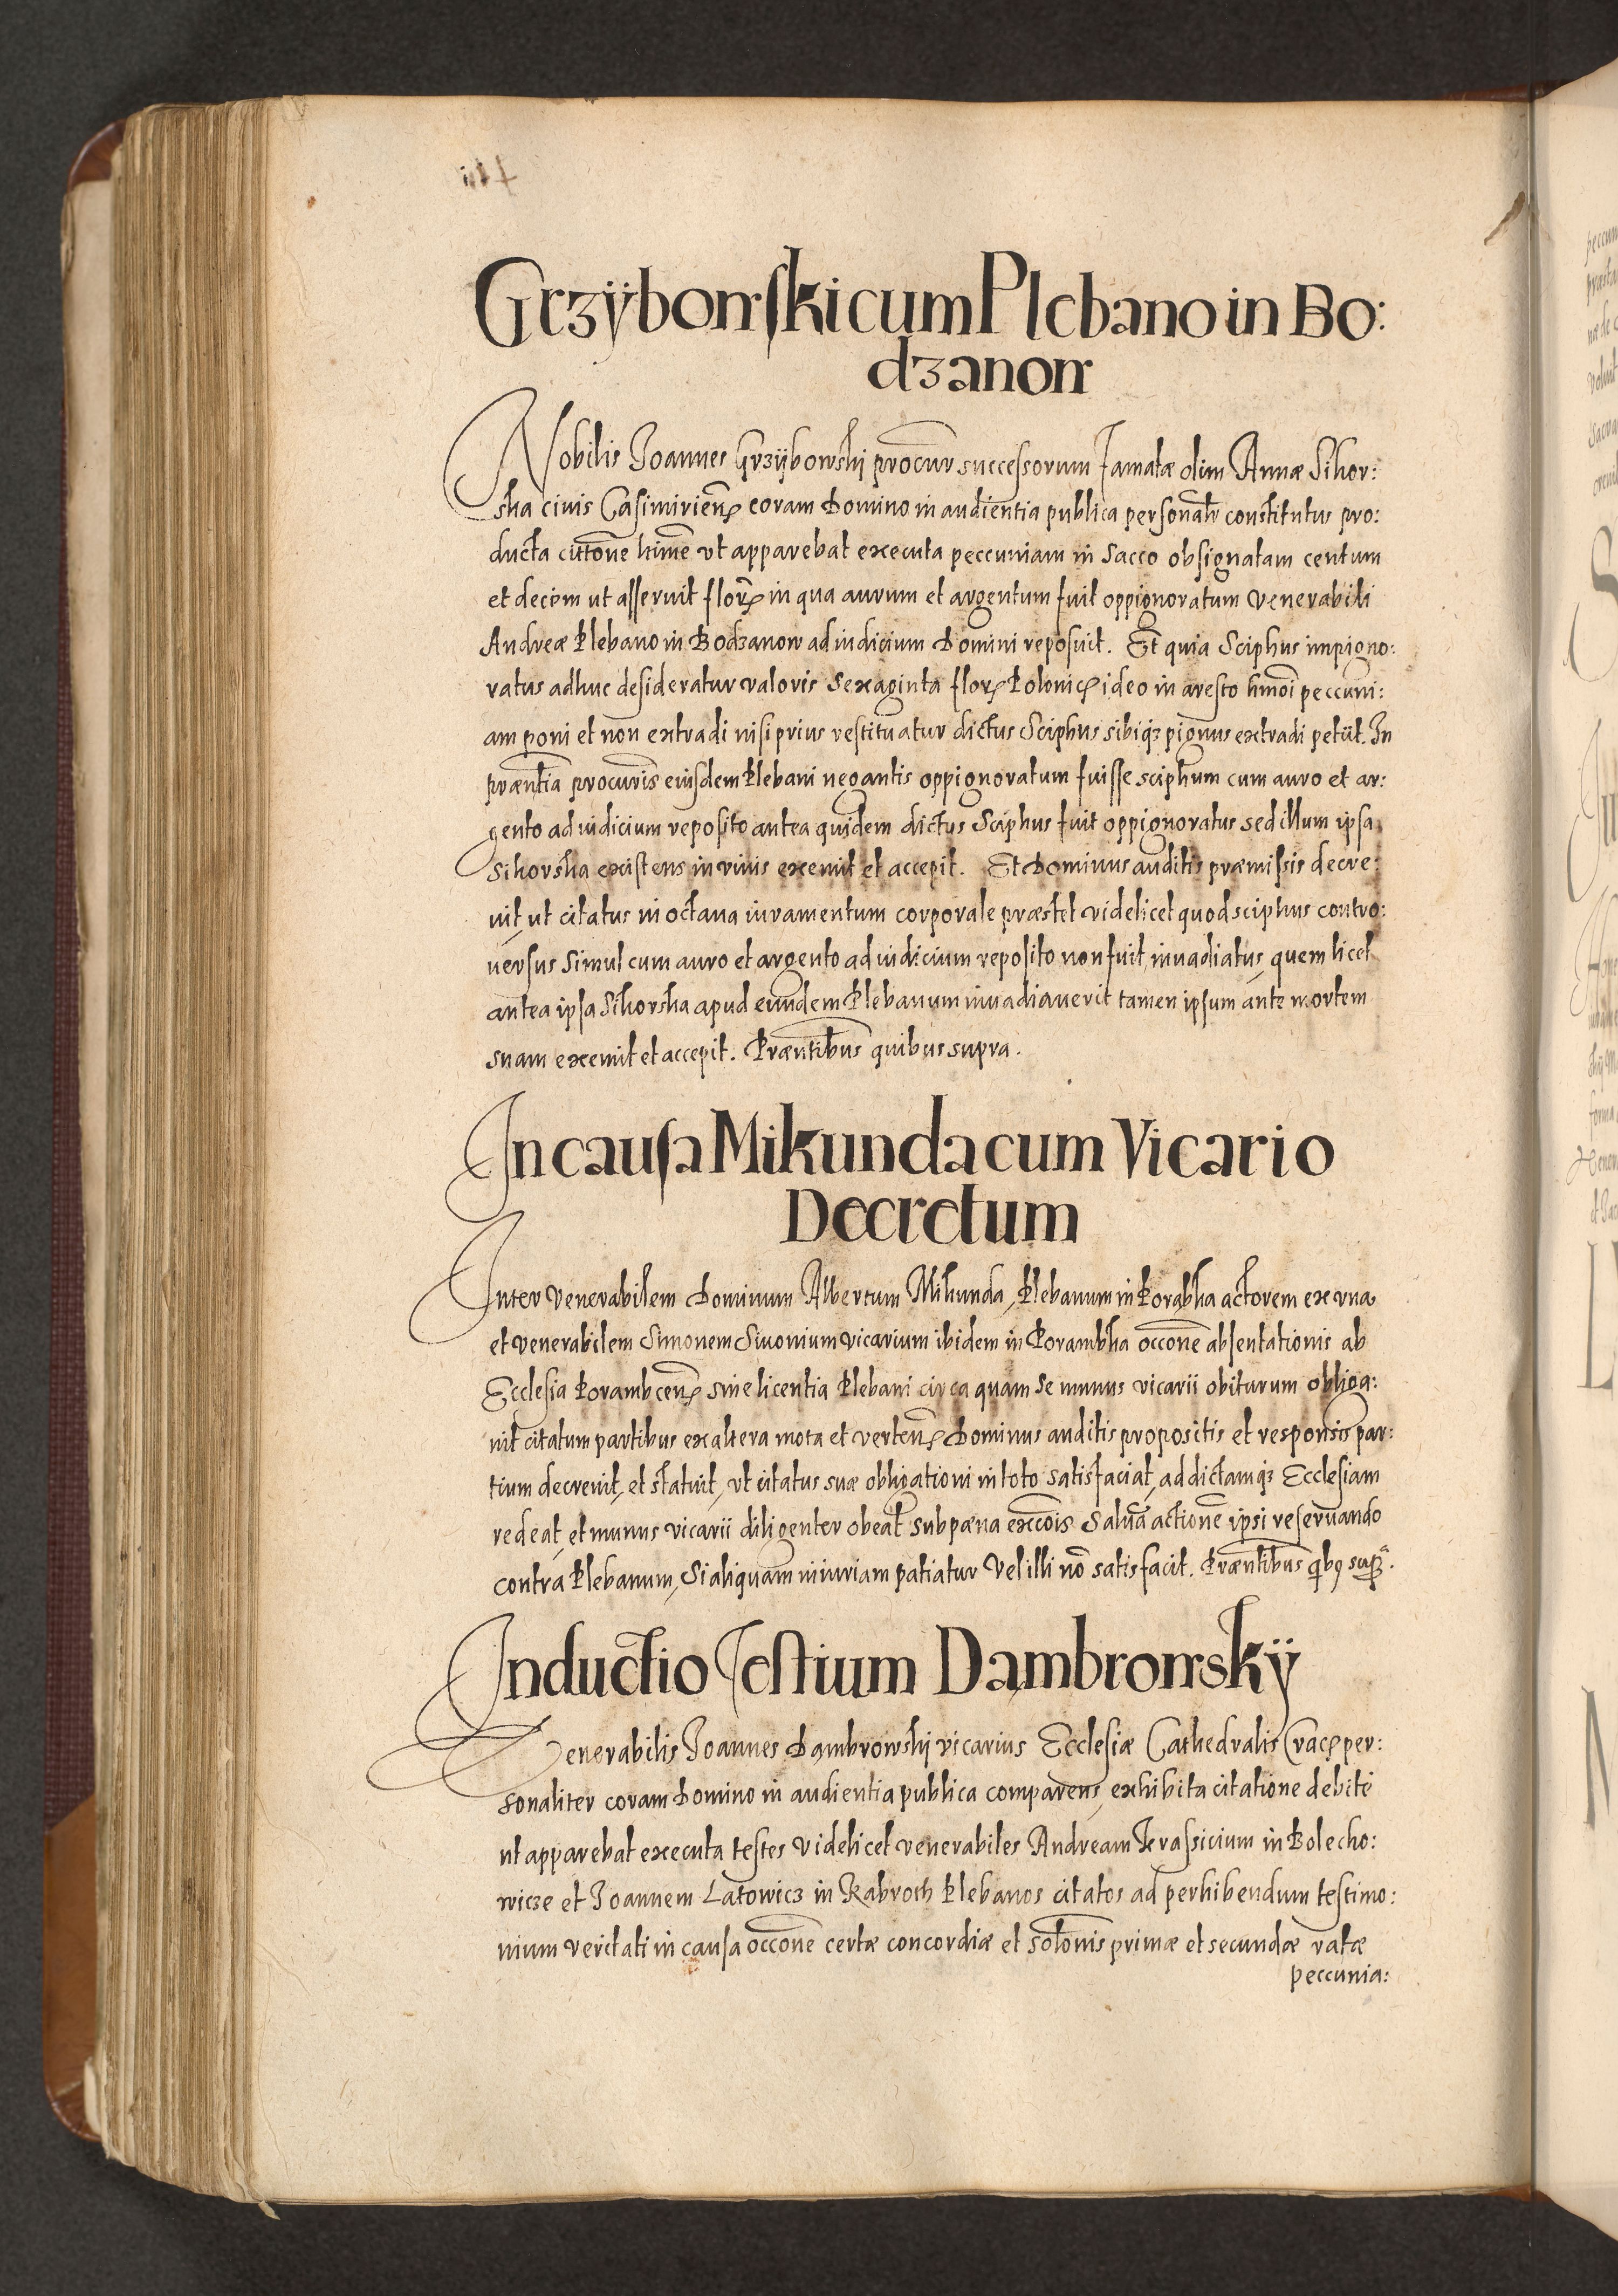 Grzÿbowski cum Plebano in Bo:
dzanow
Nobilis Joannes Grzÿbowski procur successorum famatæ olim Annæ Sikor:
ska civis Casimirieñ coram Domino in audientia publica personalr constitutus pro:
ducta cittone ut apparebat executa peccuniam in Sacco obsignatam centum
et decem ut asseruit flor in qua aurum et argentum fuit oppignoratum venerabili
Andreæ Plebano in Bodzanow ad iudicium Domini reposuit. Et quia Sciphus impigno:
ratus adhuc desideratur valoris sexaginta flor Polonic ideo in aresto hmoi peccuni:
am poni et non extradi nisi prius restituatur dictus Sciphus sibiqz pignus extradi petiit. In
præntia procuris eiusdem Plebani negantis oppignoratum fuisse sciphum cum auro et ar:
gento ad iudicium reposito antea quidem dictus Sciphus fuit oppignoratus sed illum ipsa
Sikorska existens in vivis exemit et accepit. Et Dominus auditis præmissis decre:
uit, ut citatus in octaua iuramentum corporale præstet videlicet quod sciphus contro:
uersus simul cum auro et argento ad iudicium reposito non fuit inuadiatus, quem licet
antea ipsa Sikorska apud eundem Plebanum inuadiauerit tamen ipsum ante mortem
suam exemit et accepit. Præntibus quibus supra.
In causa Mikunda cum Vicario
Decretum
Inter Venerabilem Dominum Albertum Mikunda, Plebanum in Porabka actorem ex vna
et venerabilem Simonem vicarium ibidem in Porambka occone absentationis ab
Ecclesia Porambceñ sine licentia Plebani circa quam se munus vicarii obiturum obliga:
uit citatum partibus ex altera mota et verteñ Dominus auditis propositis et responsis par:
tium decreuit, et statuit, vt citatus suæ obligationi in toto satisfaciat, ad dictamqz Ecclesiam
redeat, et munus vicarii diligenter obeat sub pæna excois Salua actione ipsi reseruando
contra Plebanum, Si aliquam iniuriam patiatur Vel illi nõ satisfacit. Præntibus qibq supra.
Inductio Testium Dambrowskÿ
Venerabilis Joannes Dambrowski vicarius Ecclesiæ Cathedralis Crac per:
sonaliter coram Domino in audientia publica comparens, exhibita citatione debite
ut apparebat executa testes videlicet venerabiles Andream Krassicium in Bolecho:
wicze et Joannem Latowicz in Plebanos citatos ad perhibendum testimo:
nium veritati in causa occone certæ concordiæ et solonis primæ et secundæ ratæ
peccunia: